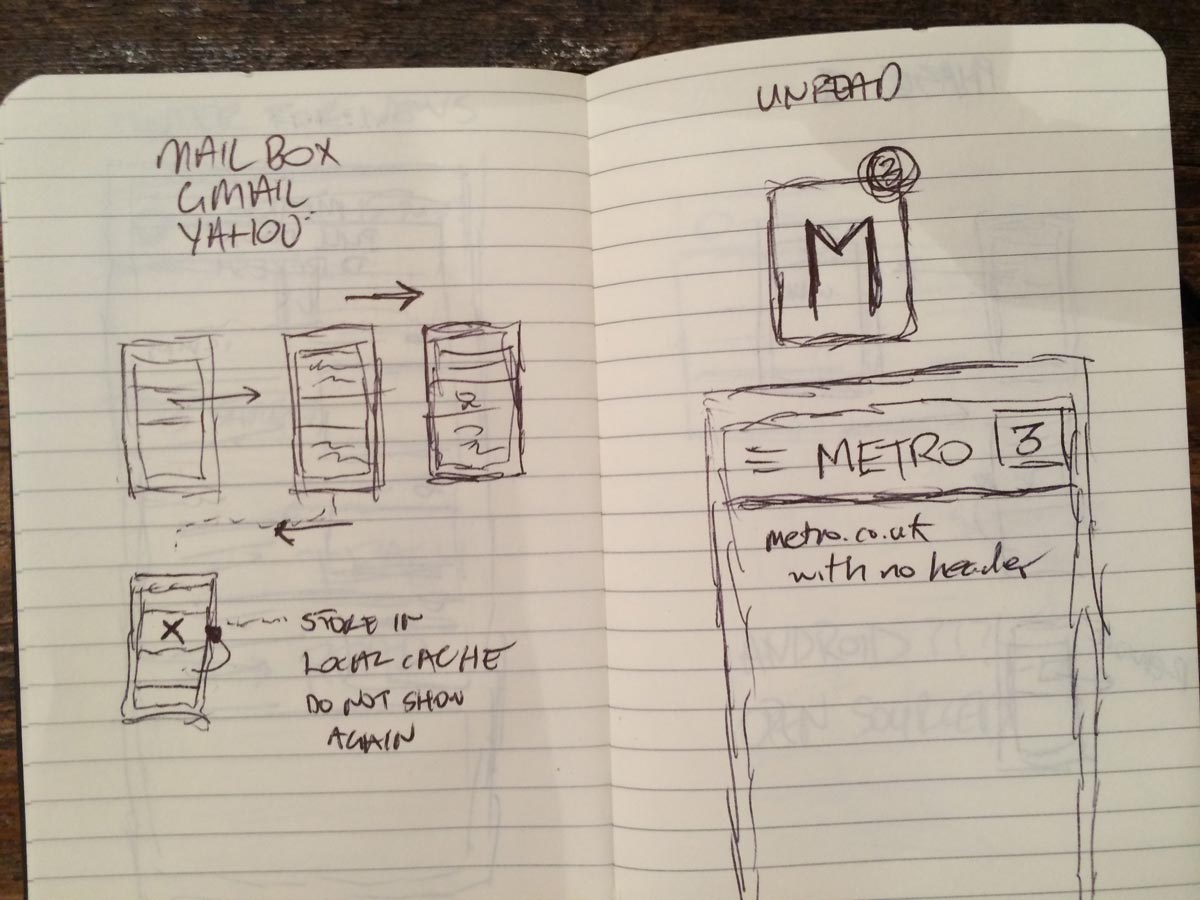 MAIL BOX
GMAIL
YAHOO
X
STORE IN
LOCAL CACHE
DO NOT SHOW
AGAIN
UNREAD
M
METRO 3
metro.co.uk
with no header